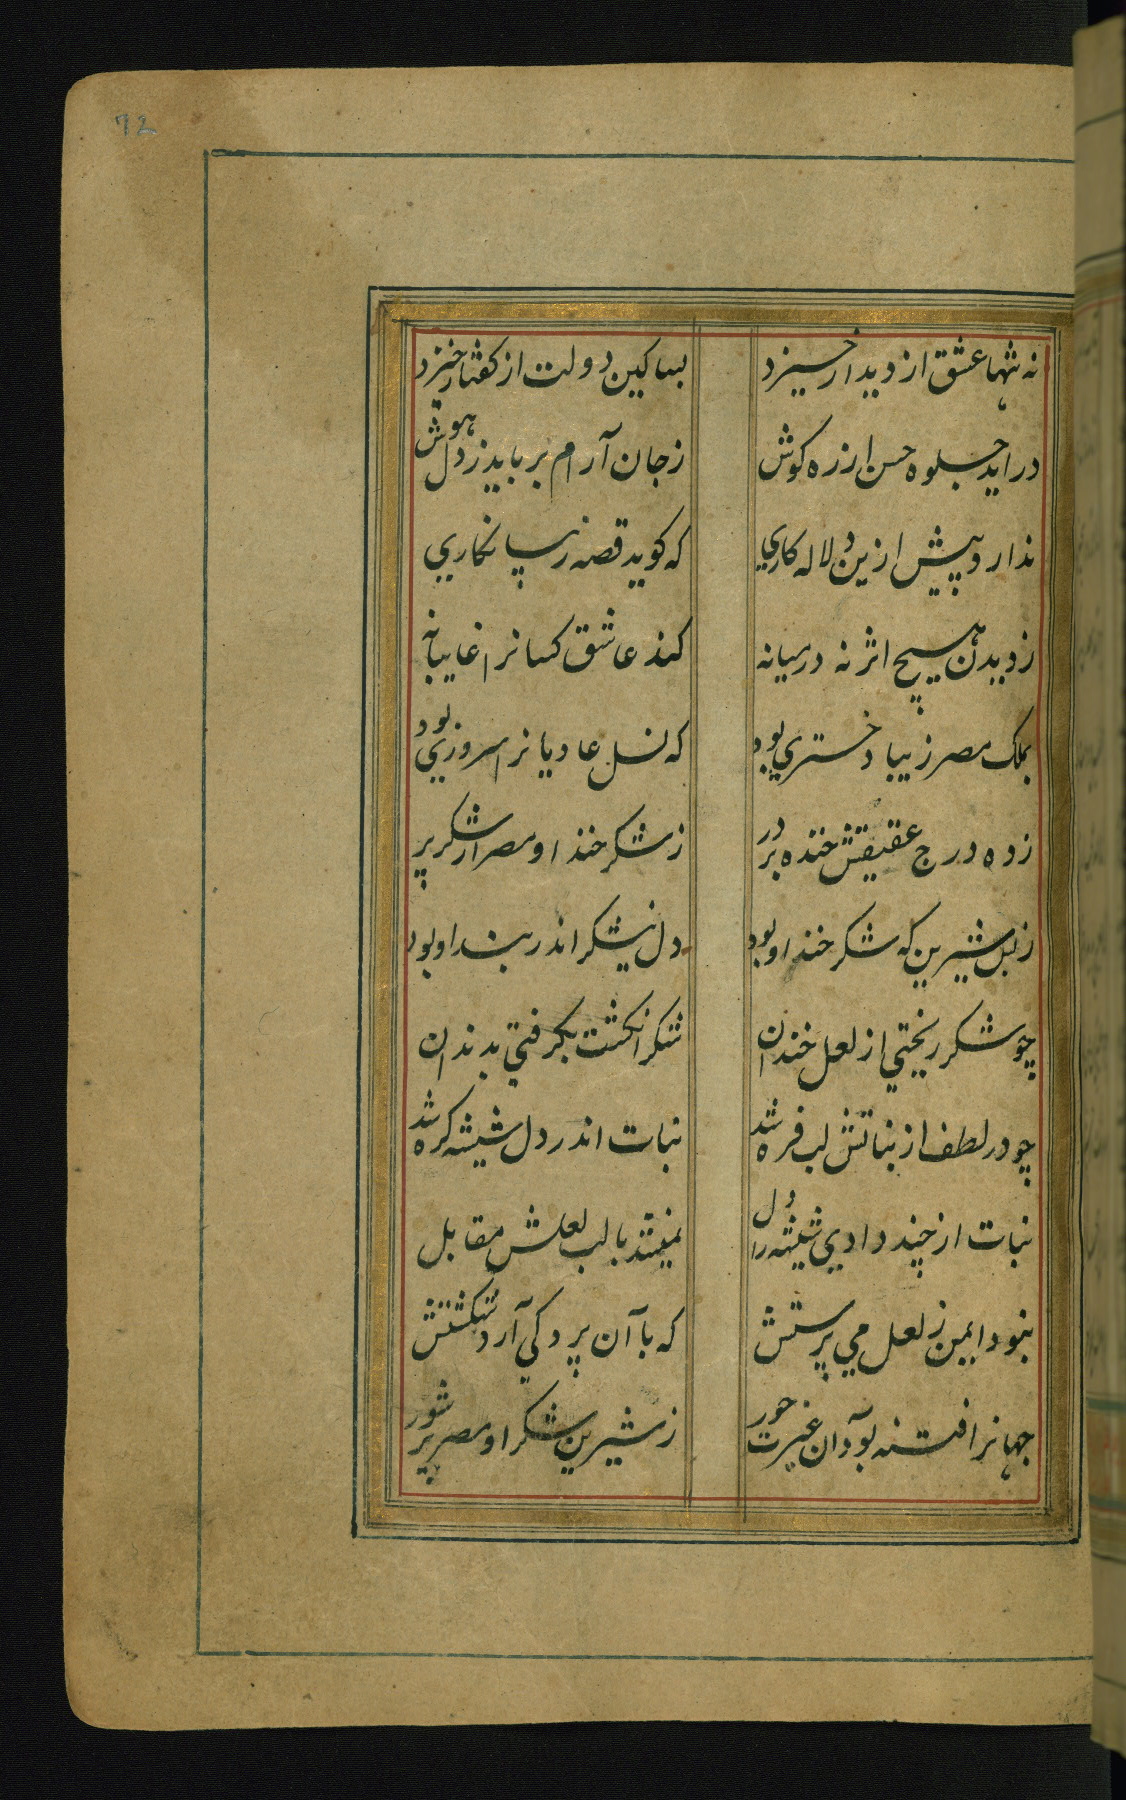 72
نه تنها عشق از دیدار خیزد بسا کین دولت از کفتار خیزد
در اید جلوه حسن از ره کوش ز جان آرام برباید ز دل هوش
ندارد پیش ازین دلاله کاری که کوید قصه زیبا نکاری
ز دیدن هیچ اثر نه در میانه کند عاشق کسانرا غایبانه
بملک مصر زیبا دختری بود که نسل عادیانرا سروری بود
زده درج عقیقش خنده بر در ز شکر خند او مصر از شکر پر
ز بس شیرین که شکر خند او بود دل نیشکر اندر بند او بود
چو شکر ریختی از لعل خندان شکر انکشت بکرفتی بدندان
چو در لطف از نباتش لب فره شد نبات اندر دل شیشه کره شد
نبات از چند دادی شیشه را دل نمیشد با لب لعلش مقابل
بنود ایمن ز لعل می پرستش که با آن پردکی آرد شکستش
جهانرا فتنه بود آن غیرت حور ز شیرین شکر او مصر پر شور